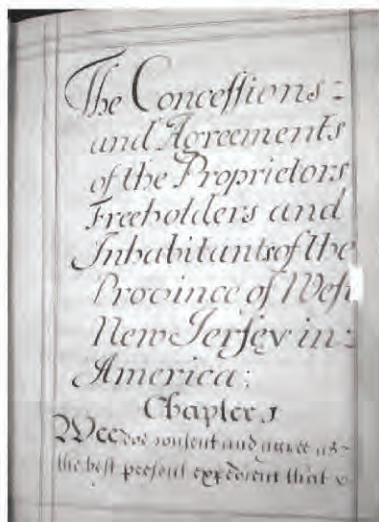 The Concessions:
and Agreements
of the Proprietors
Freeholders and
Inhabitants of the
Province of West
New Jersey in:
America:
Chapter 1
Wee doe consent and agree as
the best present expedient that